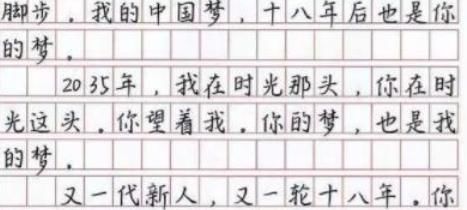 脚步。我的中国梦，十八年后也是你
的梦。
2035年，我在时光那头，你在时
光这头。你望着我。你的梦，也是我
的梦。
又一代新人，又一轮十八年。你